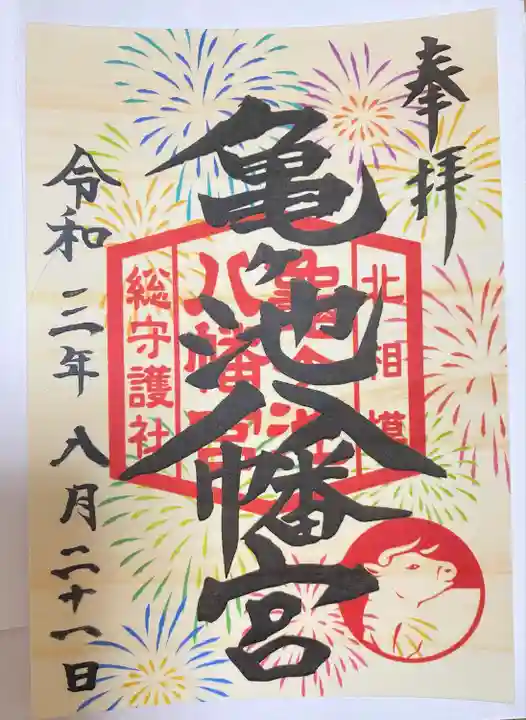 奉拝
亀ヶ池八幡宮
北相模
亀ヶ池
八幡宮
総守護社
令和三年八月二十一日